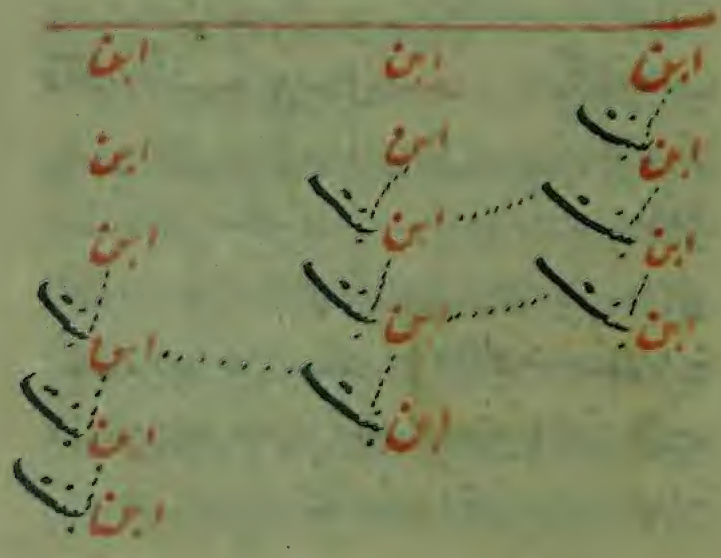 ابن ابن ابن
بنت
ابن ابن ابن
بنت بنت
ابن ابن ابن
بنت بنت بنت
ابن ابن ابن
بنت بنت
ابن ابن
بنت
ابن